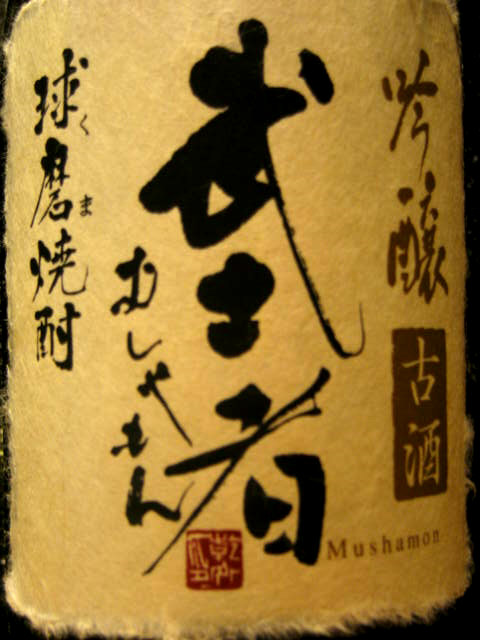 吟醸
古酒
武士者
むしゃもん
球磨焼酎
くま
Mushamon